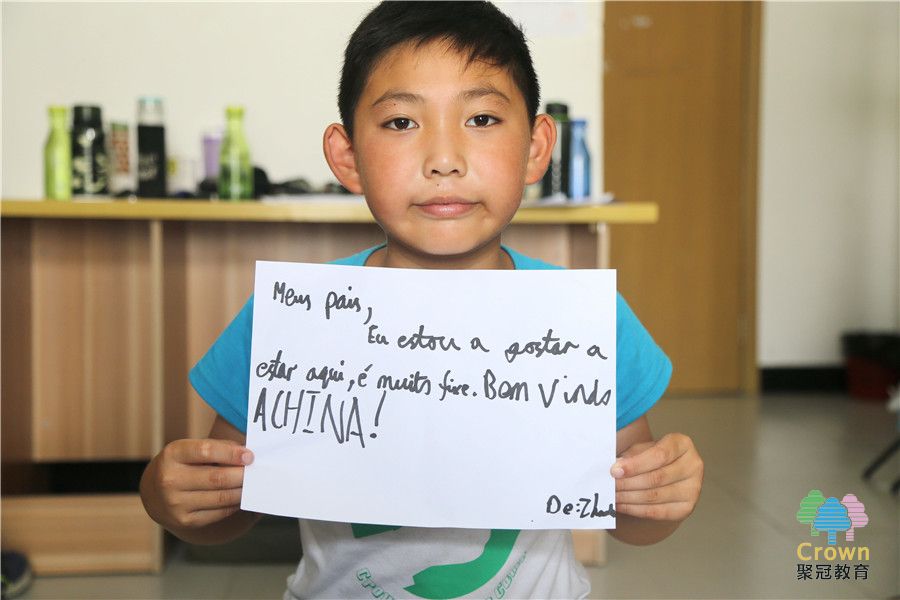 Meus pais,
Eu estou a gostar a
estar aqui, é muito fixe. Bem Vindo
A CHINA!
De:
Crown
聚冠教育